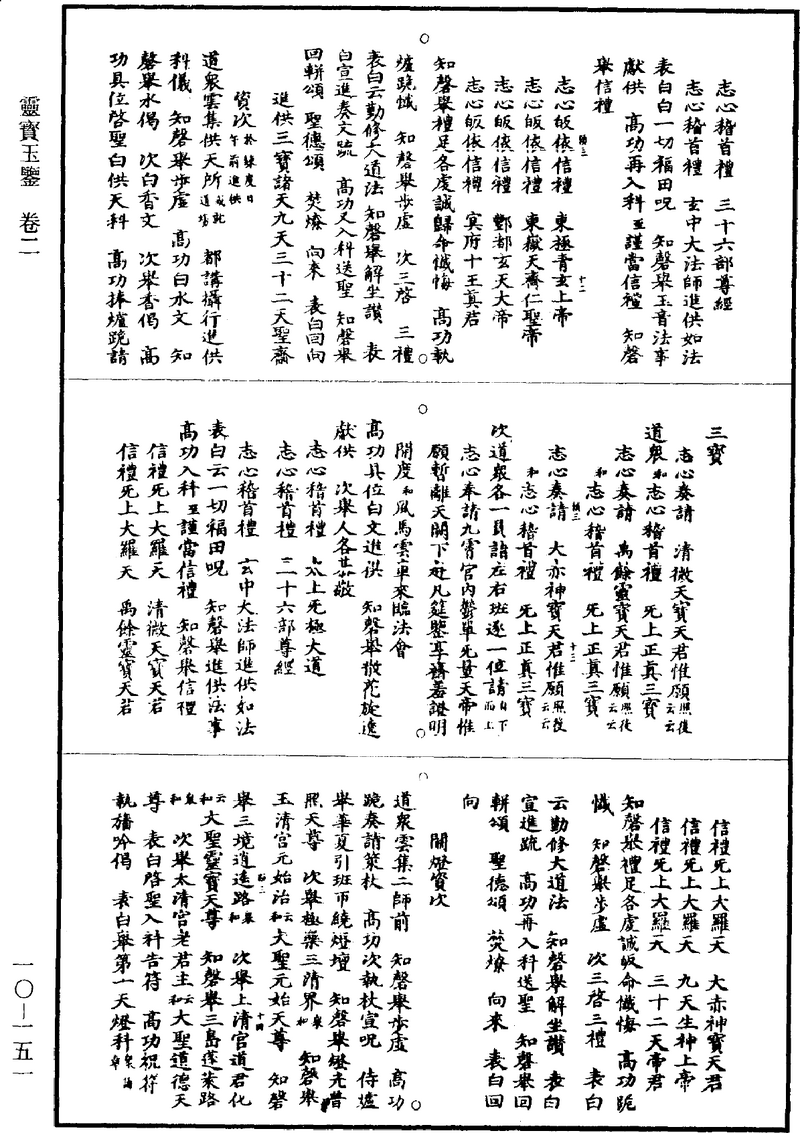 靈寶玉鑒 卷二
志心稽首禮 三十六部尊經
志心稽首禮 玄中大法師進供如法
表白白一切福田呪 知磬舉玉音法事
獻供 高功再入科至謹當信禮 知磬
舉信禮
志心皈依信禮 東極青玄上帝
志心皈依信禮 東嶽天齊仁聖帝
志心皈依信禮 酆都玄天大帝
志心皈依信禮 冥府十王真君
知磬舉禮足各虔誠歸命懺悔 高功執
爐跪懺 知磬舉步虛 次三啓 三禮
表白云勤修大道法 知磬舉解坐讚 表
白宣進奏文疏 高功又入科送聖 知磬舉
回輧頌 聖德頌 焚燎 向來 表白回向
進供三寶諸天九天三十二天聖齋
資次於緣度日午前進供
道衆雲集供天所或就道場 都講攝行進供
科儀 知磬舉步虛 高功白水文 知
磬舉水偈 次白香文 次舉香偈 高
功具位啓聖白供天科 高功捧爐跪請
三寶
志心奏請 清微天寶天君惟願照後
道衆和志心稽首禮 旡上正真三寶
志心奏請 禹餘靈寶天君惟願照後云云
和志心稽首禮 旡上正真三寶
志心奏請 大赤神寶天君惟願照後云云
和志心稽首禮 旡上正真三寶
次道衆各一員詣左右班逐一位請自下而上
志心奉請九霄宮內無量天帝惟
願暫離天闕下赴凡筵鑒享齋羞證明
開度和風馬雲車來臨法會
高功具位白文進供 知磬舉散花旋遶
獻供 次舉人各恭敬
志心稽首禮 太上旡極大道
志心稽首禮 三十六部尊經
志心稽首禮 玄中大法師進供如法
表白云一切福田呪 知磬舉進供法事
高功入科至謹當信禮 知磬舉信禮
信禮旡上大羅天 清微天寶天君
信禮旡上大羅天 禹餘靈寶天君
信禮旡上大羅天 大赤神寶天君
信禮旡上大羅天 九天生神上帝
信禮旡上大羅天 三十二天帝君
知磬舉禮足各虔誠皈命懺悔 高功跪
懺 知磬舉步虛 次三啓三禮 表白
云勤修大道法 知磬舉解坐讚 表白
宣進疏 高功再入科送聖 知磬舉回
輧頌 聖德頌 焚燎 向來 表白回
向
關燈資次
道衆雲集二師前 知磬舉步虛 高功
跪奏請策杖 高功次執杖宣呪 侍爐
舉華夏引班帀繞燈壇 知磬舉燈光普
照天尊 次舉極樂三清界衆和 知磬舉
玉清宮元始治和云大聖元始天尊 知磬
舉三境逍遙路衆和 次舉上清宮道君化
和云大聖靈寶天尊 知磬舉三島蓬萊路
衆和 次舉太清宮老君主和云大聖道德天
尊 表白啓聖入科告符 高功祝符
執旛吟偈 表白舉第一天燈科
一〇－一五一